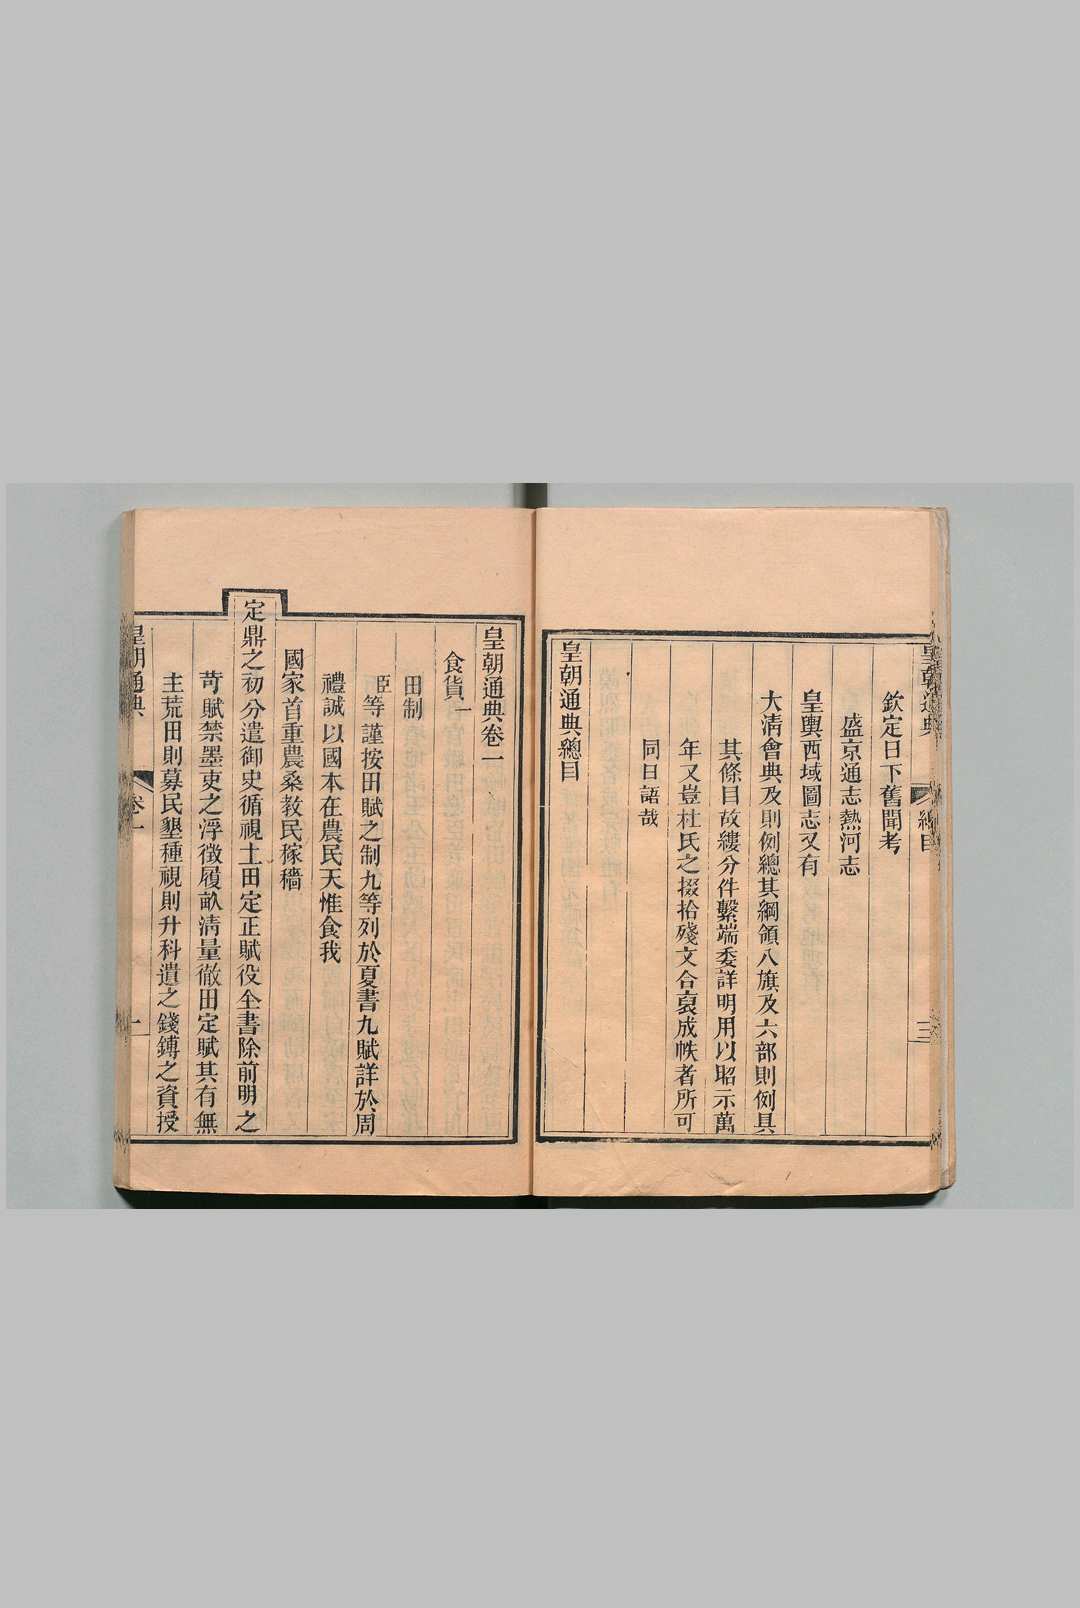 皇朝通典
總目
三
欽定日下舊聞考
盛京通志熱河志
皇輿西域圖志又有
大清會典及則例總其綱領八旗及六部則例具
其條目故縷分件繫端委詳明用以昭示萬
年又豈杜氏之掇拾殘文合裒成帙者所可
同日語哉
皇朝通典總目
皇朝通典卷一
食貨一
田制
臣等謹按田賦之制九等列於夏書九賦詳於周
禮誠以國本在農民天惟食我
國家首重農桑教民稼穡
定鼎之初分遣御史循視土田定正賦役全書除前明之
苛賦禁墨吏之浮徵履畝清量徹田定賦其有無
主荒田則募民墾種視則升科遺之錢鎛之資授
皇朝通典
卷一
一